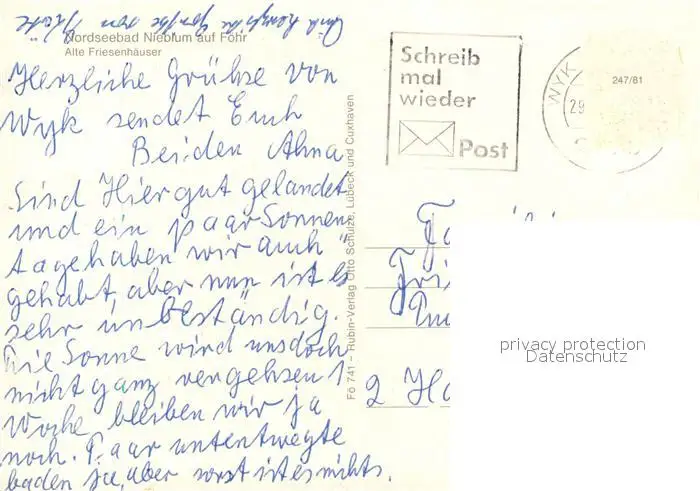 Nordseebad Nieblum auf Föhr
Alte Friesenhäuser
Herzliche Grühse von
Wyk sendet Euch
Beiden Ahna
Sind Hier gut gelandet
und ein paar Sonnen
tagehaben wir auch
gehabt, aber nun ist es
sehr unbeständig.
Die Sonne wird uns doch
nicht ganz vergehsen 1
Woche bleiben wir ja
noch. Paar untentwegte
baden ja, aber sonst ist es nichts.
Fö 741 – Rubin-Verlag Otto Schulze, Lübeck und Cuxhaven
Schreib
mal
wieder
Post
WYK
29
247/81
Fa
Fri
2 Ha
privacy protection
Datenschutz